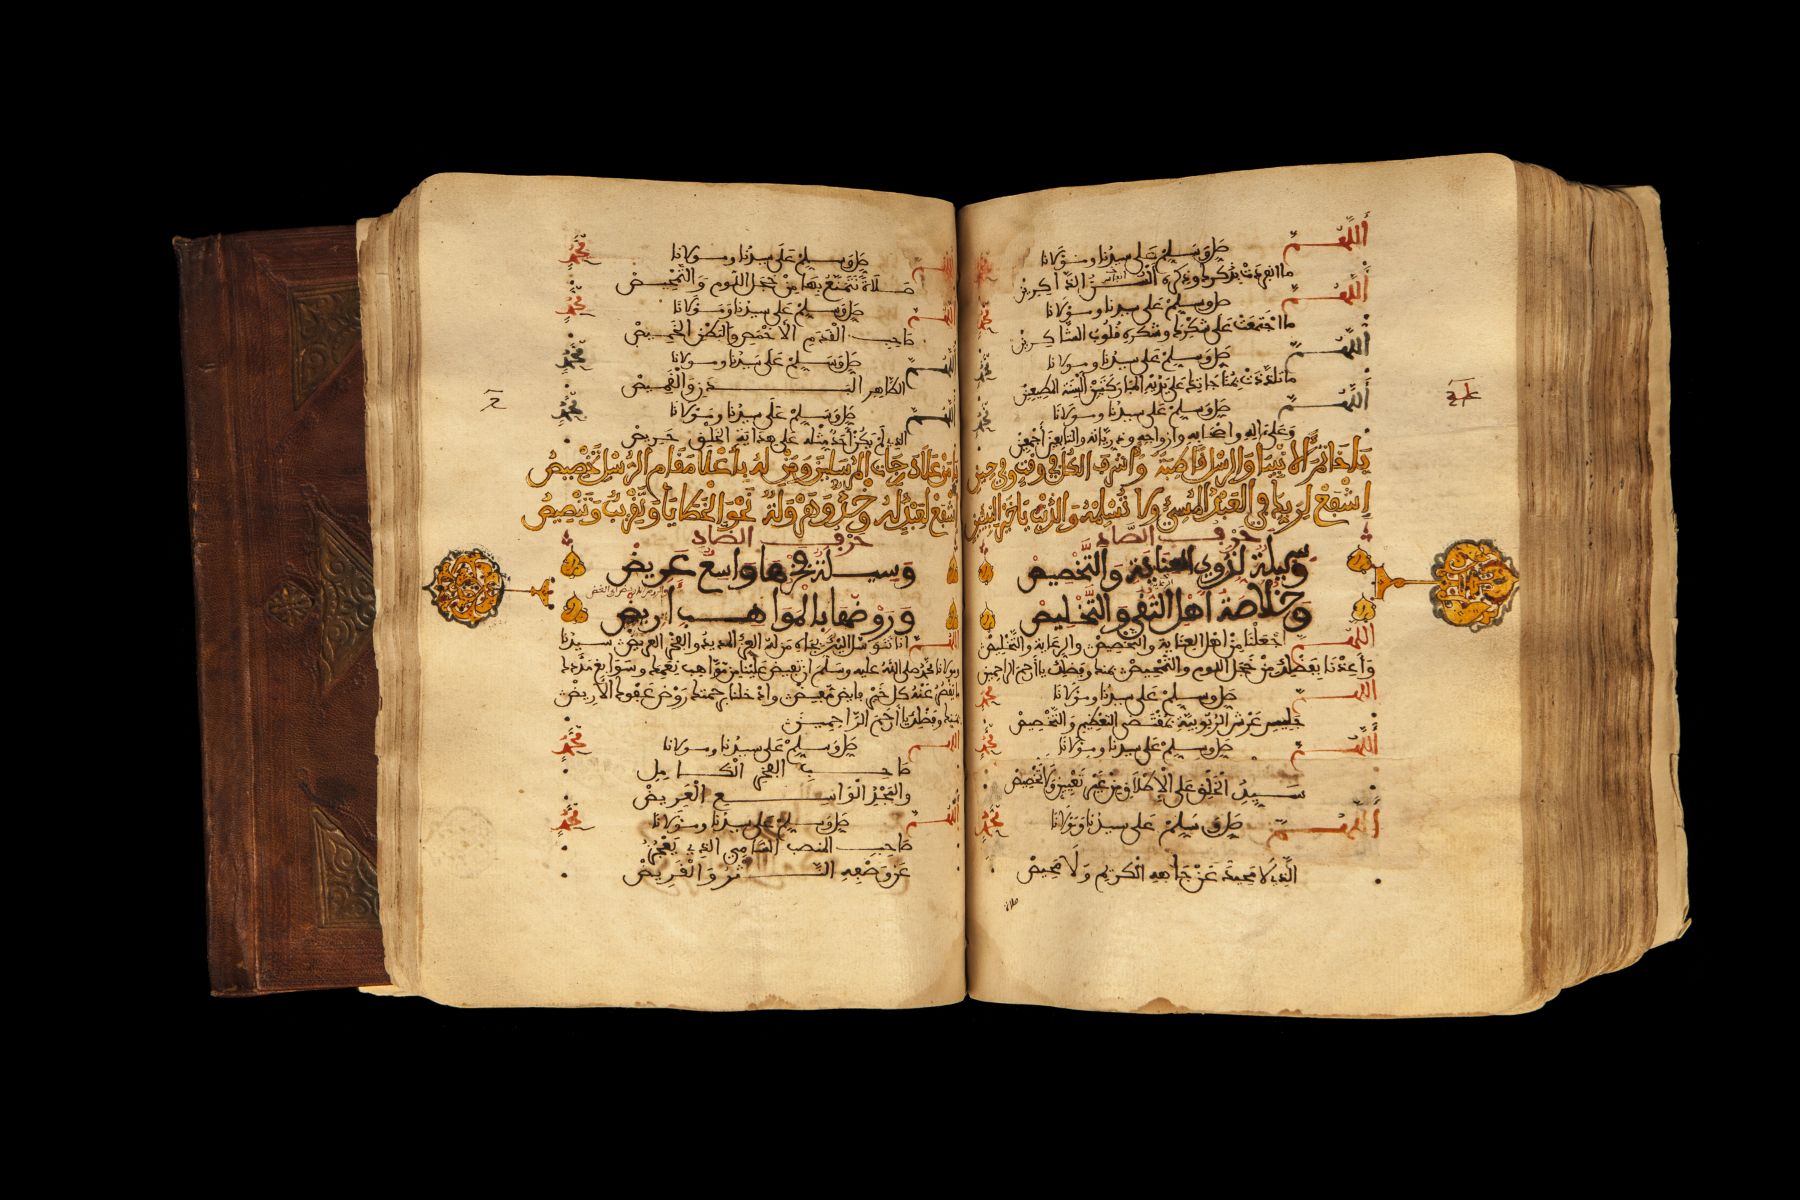 اللهم صل وسلم على سيدنا ومولانا محمد
ما انفردت بذكرك وذكره ألسن الذاكرين
اللهم صل وسلم على سيدنا ومولانا محمد
ما اجتمعت على شكرك وشكره قلوب الشاكرين
اللهم صل وسلم على سيدنا ومولانا محمد
ما تلذذت بمناجاتك على تربته المباركة ألسنة المطيعين
اللهم صل وسلم على سيدنا ومولانا محمد
وعلى اله واصحابه وازواجه وذرياته والتابعين أجمعين
يا خاتم الانبيا والرسل قاطبة وأشرف الكل في وقت وفي حين
اشفع لربك في العبد المسيء ولا تسلمه والذنب يا خير النبيين
حرف الصاد
وسيلة لذوي العناية والتخصيص
وخلاصة أهل التقى والتخليص
اللهم اجعلنا من اهل العناية والتخصيص والرعاية والتخليص
وأعذنا بفضلك من خجل اللوم والتمحيص بمنك وفضلك يا أرحم الراحمين
اللهم صل وسلم على سيدنا ومولانا محمد
جليس عرش الربوبية بمقتضى التعظيم والتخصيص
اللهم صل وسلم على سيدنا ومولانا محمد
سيد الخلق على الإطلاق من غير تعيين ولا تخصيص
اللهم صل وسلم على سيدنا ومولانا محمد
الذي لا محيد عن جاهه الكريم ولا محيص
صلاة
اللهم صل وسلم على سيدنا ومولانا محمد
صلاة نتمتع بها من خجل اللوم والتمحيص
اللهم صل وسلم على سيدنا ومولانا محمد
صاحب القدم الأخمص والبطن الخميص
اللهم صل وسلم على سيدنا ومولانا محمد
الطاهر البدن والقميص
اللهم صل وسلم على سيدنا ومولانا محمد
الذي لم يكن أحد مثله على هداية الخلق حريص
يا من علا درجات المرسلين ومن له بأعلا مقام الرسل تخصيص
اشفع لعبد له نحو الخطايا وتقريب وتنصيص
حرف الضاد
وسيلة فخرها واسع عريض
وروضها بالمواهب اريض
اللهم انا نتوسل اليك بجاه من له العز المديد والفخر العريض سيدنا
ومولانا محمد صلى الله عليه وسلم ان تفيض علينا من مواهب نعمك وسوابغ مددك
وادخلنا برحمتك روض عفوك الأريض
بمنك وفضلك يا أرحم الراحمين
اللهم صل وسلم على سيدنا ومولانا محمد
صاحب الفخر الكامل
والمجد الواسع العريض
اللهم صل وسلم على سيدنا ومولانا محمد
صاحب المنصب السامي الذي يعجز
عن وصفه النثر والقريض